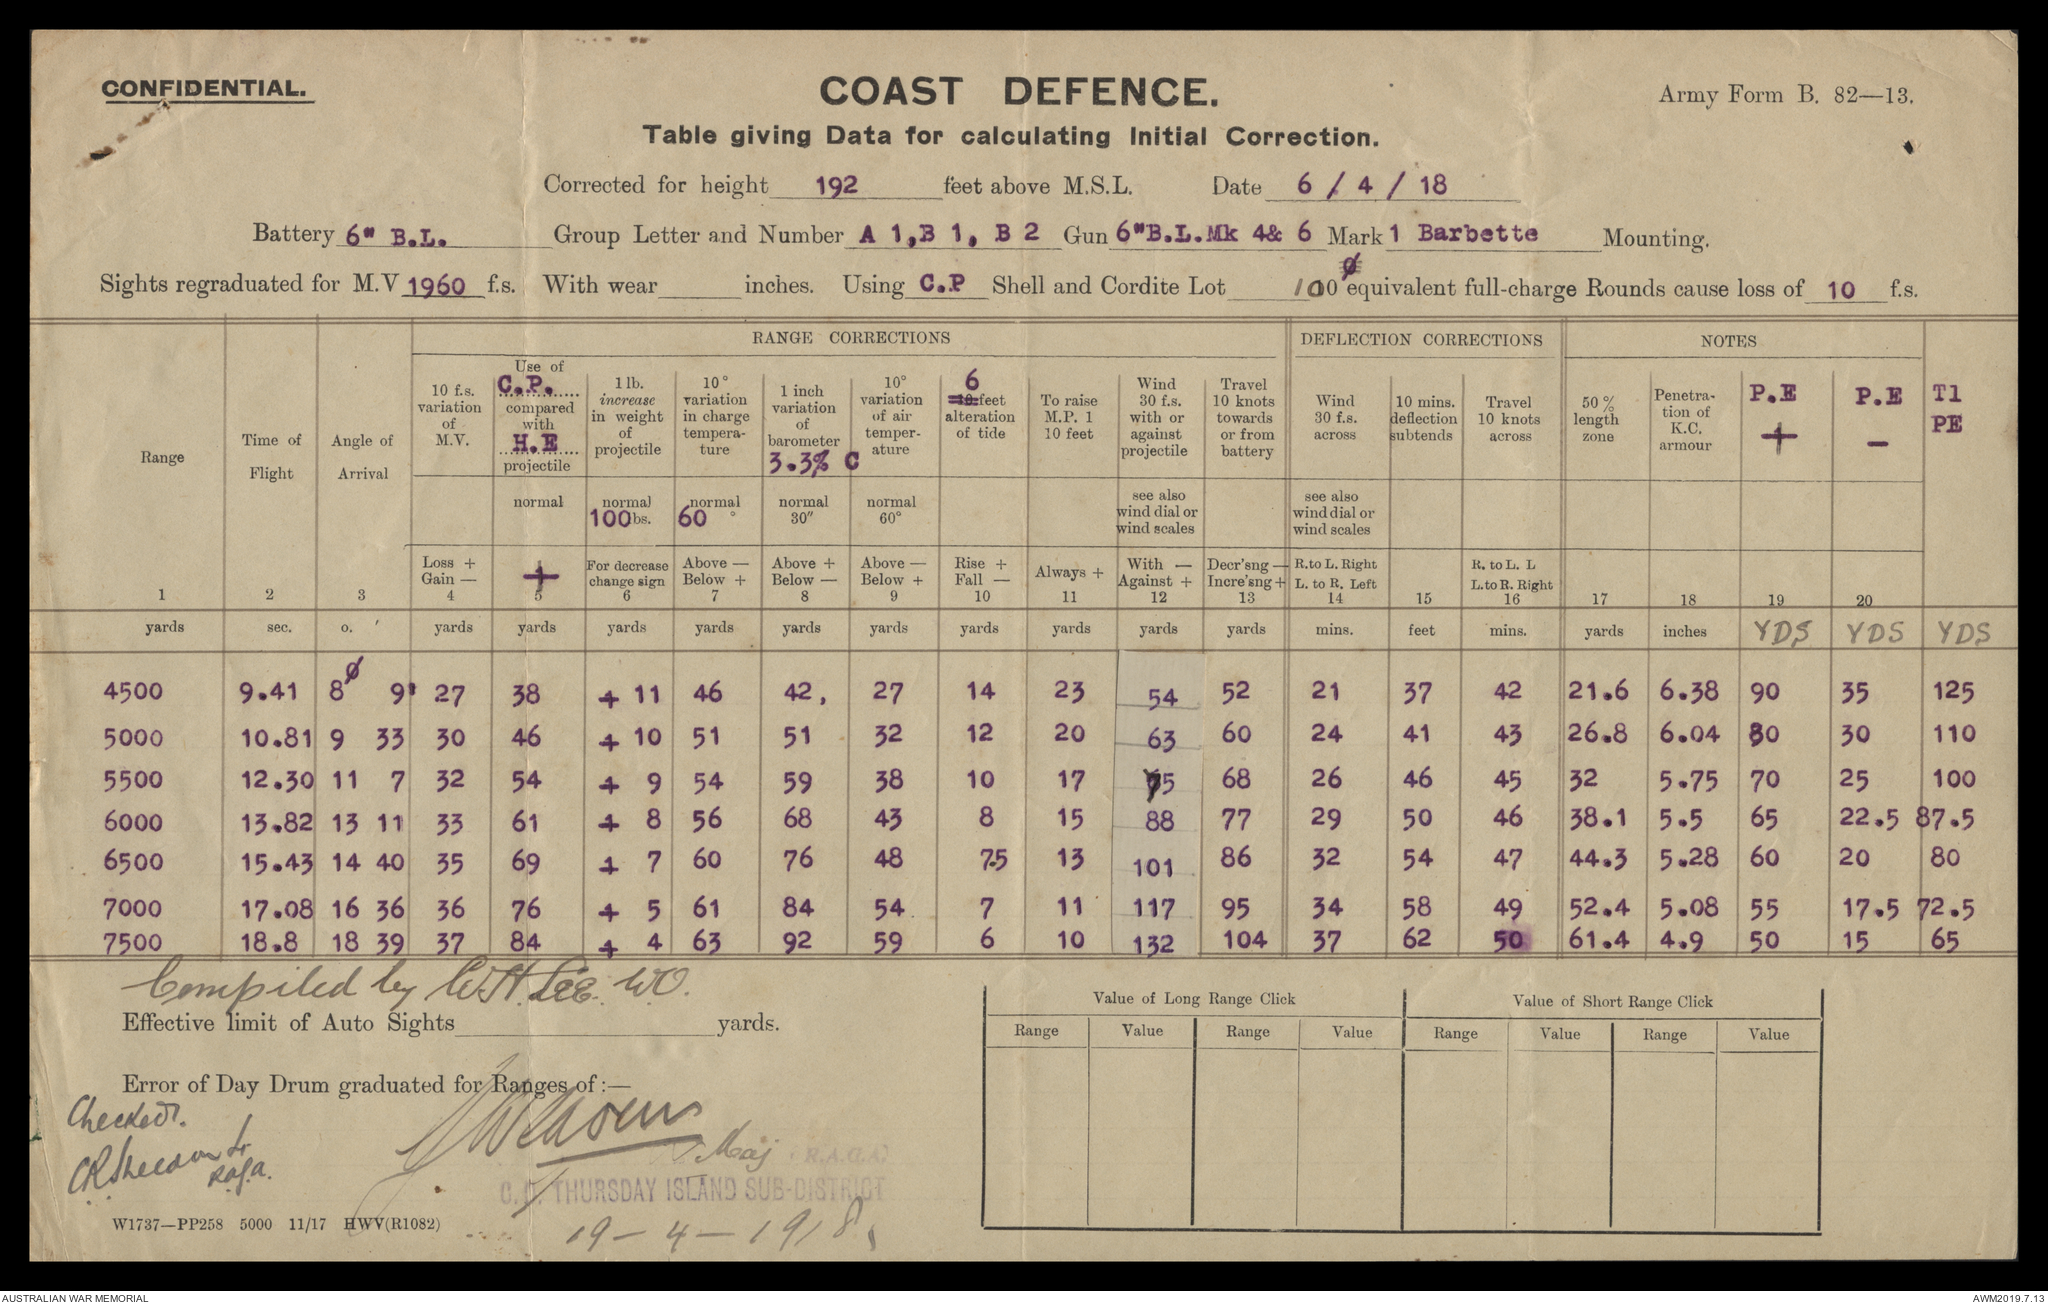 CONFIDENTIAL.
COAST DEFENCE.
Army Form B. 82—13.
Table giving Data for calculating Initial Correction.
Corrected for height 192 feet above M.S.L. Date 6 / 4 / 18
Battery 6" B.L. Group Letter and Number A 1,B 1, B 2 Gun 6"B.L.Mk 4& 6 Mark 1 Barbette Mounting.
Sights regraduated for M.V 1960 f.s. With wear inches. Using C.P Shell and Cordite Lot 100 equivalent full-charge Rounds cause loss of 10 f.s.
RANGE CORRECTIONS DEFLECTION CORRECTIONS NOTES
Range
Time of Flight
Angle of Arrival
10 f.s. variation of M.V.
Use of C.P. compared with H.E projectile
1 lb. increase in weight of projectile
10° variation in charge tempera- ture
1 inch variation of barometer 3.3% C
10° variation of air temper- ature
6 feet alteration of tide
To raise M.P. 1 10 feet
Wind 30 f.s. with or against projectile
Travel 10 knots towards or from battery
Wind 30 f.s. across
10 mins. deflection subtends
Travel 10 knots across
50 % length zone
Penetra- tion of K.C. armour
P.E +
P.E —
T1 PE
normal
normal 100 lbs.
normal 60 °
normal 30"
normal 60°
see also wind dial or wind scales
see also wind dial or wind scales
Loss + Gain —
+
For decrease change sign
Above — Below +
Above + Below —
Above — Below +
Rise + Fall —
Always +
With — Against +
Decr'sng — Incre'sng +
R. to L. Right L. to R. Left
R. to L. L L. to R. Right
1 2 3 4 5 6 7 8 9 10 11 12 13 14 15 16 17 18 19 20
yards sec. o. ' yards yards yards yards yards yards yards yards yards yards mins. feet mins. yards inches YDS YDS YDS
4500 9.41 8 9' 27 38 + 11 46 42, 27 14 23 54 52 21 37 42 21.6 6.38 90 35 125
5000 10.81 9 33 30 46 + 10 51 51 32 12 20 63 60 24 41 43 26.8 6.04 80 30 110
5500 12.30 11 7 32 54 + 9 54 59 38 10 17 75 68 26 46 45 32 5.75 70 25 100
6000 13.82 13 11 33 61 + 8 56 68 43 8 15 88 77 29 50 46 38.1 5.5 65 22.5 87.5
6500 15.43 14 40 35 69 + 7 60 76 48 7.5 13 101 86 32 54 47 44.3 5.28 60 20 80
7000 17.08 16 36 36 76 + 5 61 84 54 7 11 117 95 34 58 49 52.4 5.08 55 17.5 72.5
7500 18.8 18 39 37 84 + 4 63 92 59 6 10 132 104 37 62 50 61.4 4.9 50 15 65
Compiled by W.H. Lee. W.O.
Effective limit of Auto Sights yards.
Error of Day Drum graduated for Ranges of:—
Checked.
Lt
R.A.G.A.
Maj (R.A.G.A)
C.O. THURSDAY ISLAND SUB-DISTRICT
19 - 4 - 1918
W1737—PP258 5000 11/17 HWV(R1082)
Value of Long Range Click Value of Short Range Click
Range Value Range Value Range Value Range Value
AUSTRALIAN WAR MEMORIAL
AWM2019.7.13